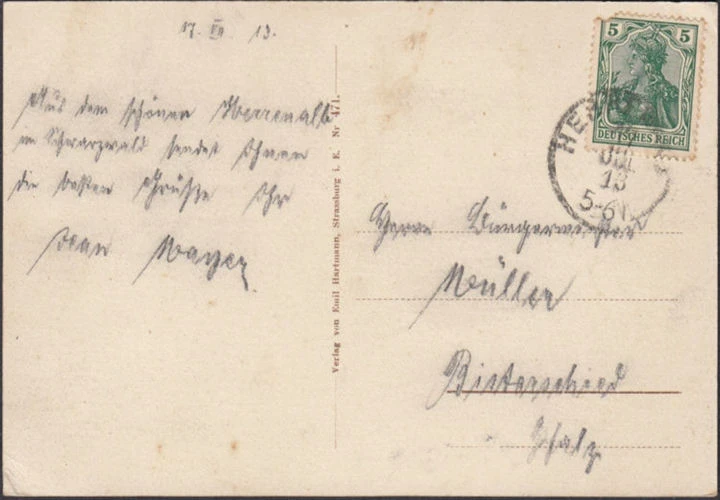 17. VII. 13.
Aus dem schönen Herrenalb
im Schwarzwald sendet Ihnen
die besten Grüße Ihr
Jean Mayer
Verlag von Emil Hartmann, Strassburg i. E. Nr 471.
5 5
DEUTSCHES REICH
JUL
13
5-6N.
Herrn Bürgermeister
Müller
Bisterschied
Pfalz